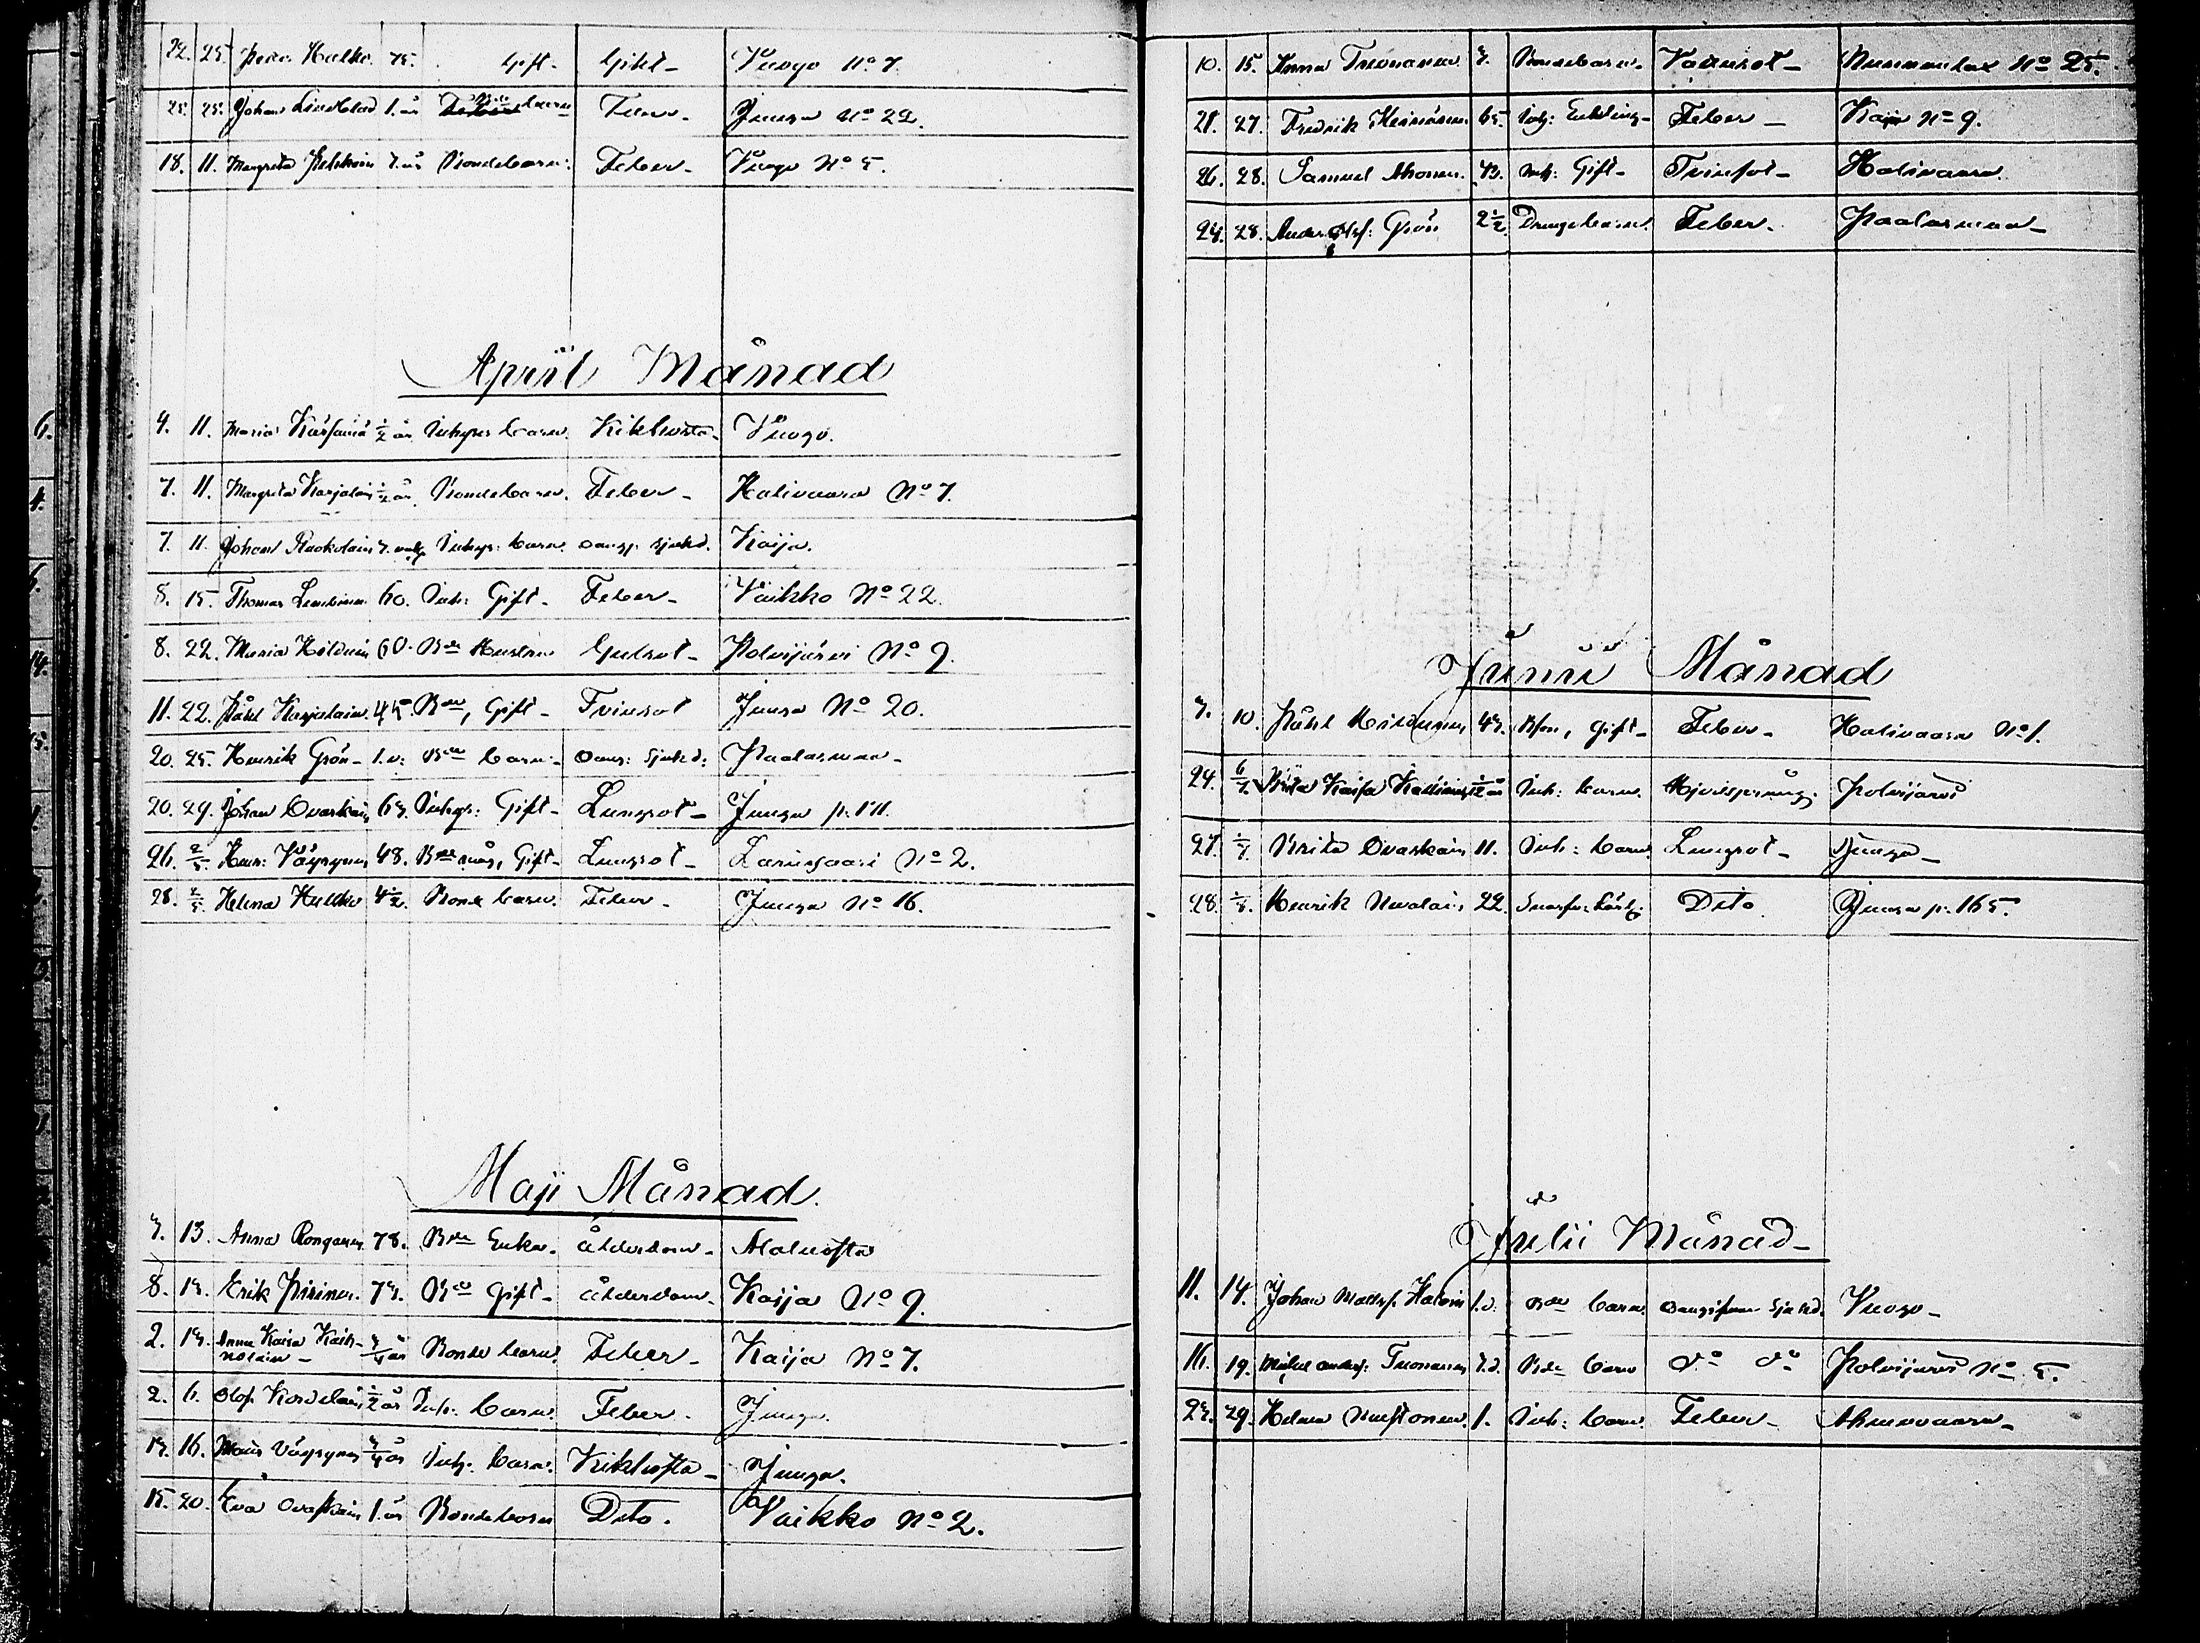 22. 25. Hulko. 75. Gift. Gikt Vuogo No 7.
25. 25. Johan Lindblad 1. år barn Feber Juuga No 22.
18. 11. Margreta år Bondebarn. Feber. Vuogo No 5.
Apriil Månad
4. 11. Maria ½ år Inhyses barn. Kikhosta Vuogo.
7. 11. Margreta Karjalain ½ år Bondebarn. Feber Halivaara No 7.
7. 11. Johan Ruokolain Inhys: barn. oangf. sjukd. Kaija.
8. 15. Thomas 60. Inh: Gift Feber Vaikko No 22.
8. 22. Maria Hildnin 60. Bde Hustru Gulsot Polvijärvi No 9.
11. 22. Påhl Karjalain 45. Bden, Gift Tvinsot Juuga No 20.
20. 25. Henrik Grön 1. v: Bde barn oang: Sjukd: Paalasmaa
20. 29. Johan Ovaskain 63. Inhys: Gift Lungsot Juuga p. 171.
26. 2/5 Henr: Väyrynen 48. Gift Lungsot Larinsaari No 2.
28. 2/5. Helena Hulko 4½ Bonde barn. Feber Juuga No 16.
Maji Månad.
3. 13. Anna Rongainen 78. Bde Enka. ålderdom Alaluosta
8. 13. Erik Piirinen. 73. Bde Gift ålderdom. Kaija No 9.
2. 13. Anna Kaisa Kaik-
nolain ¾ år Bonde barn. Feber Kaija No 7.
2. 6. Olof ½ år Inh: barn. Feber. Juuga.
13. 16. Väyrynen ¾ år Inh: barn. Kikhosta Juuga.
15. 20. Eva Ovaskain 1. år Bondebarn Dito. Vaikko No 2.
10. 15. Anna Tuonanen 3. Bondebarn. Vattusot Nunnanlax No 25.
21. 27. Fredrik Heinonen 65. Inh: Enkling Feber No 9.
26. 28. Samuel Ahonen. 73. Inh: Gift Tvinsot Halivaara.
24. 28. Anders Olofs: Grön 2½ Drängebarn. Feber. Paalasmaa
Junii Månad
3. 10. Påhl Hildunen 43. Bden, Gift Feber Halivaara No 1.
24. 6/7 Brita Kaisa ½ år Inh: barn. Polvijärvi
27. 1/7. Brita Ovaskain 11. Inh: barn. Lungsot Juuga
28. 1/8. Henrik Nevalain 22. Dito Juuga p. 165.
Julii Månad
11. 14. Johan Matts: 1. d: Bde barn oangifven Sjukd. Vuogo
16. 19. Michel Anders: Tuonanen 3. d. Bde barn do do Polvijärvi No 5.
23. 29. Helena 1. Inh: barn. Feber Ahmovaara